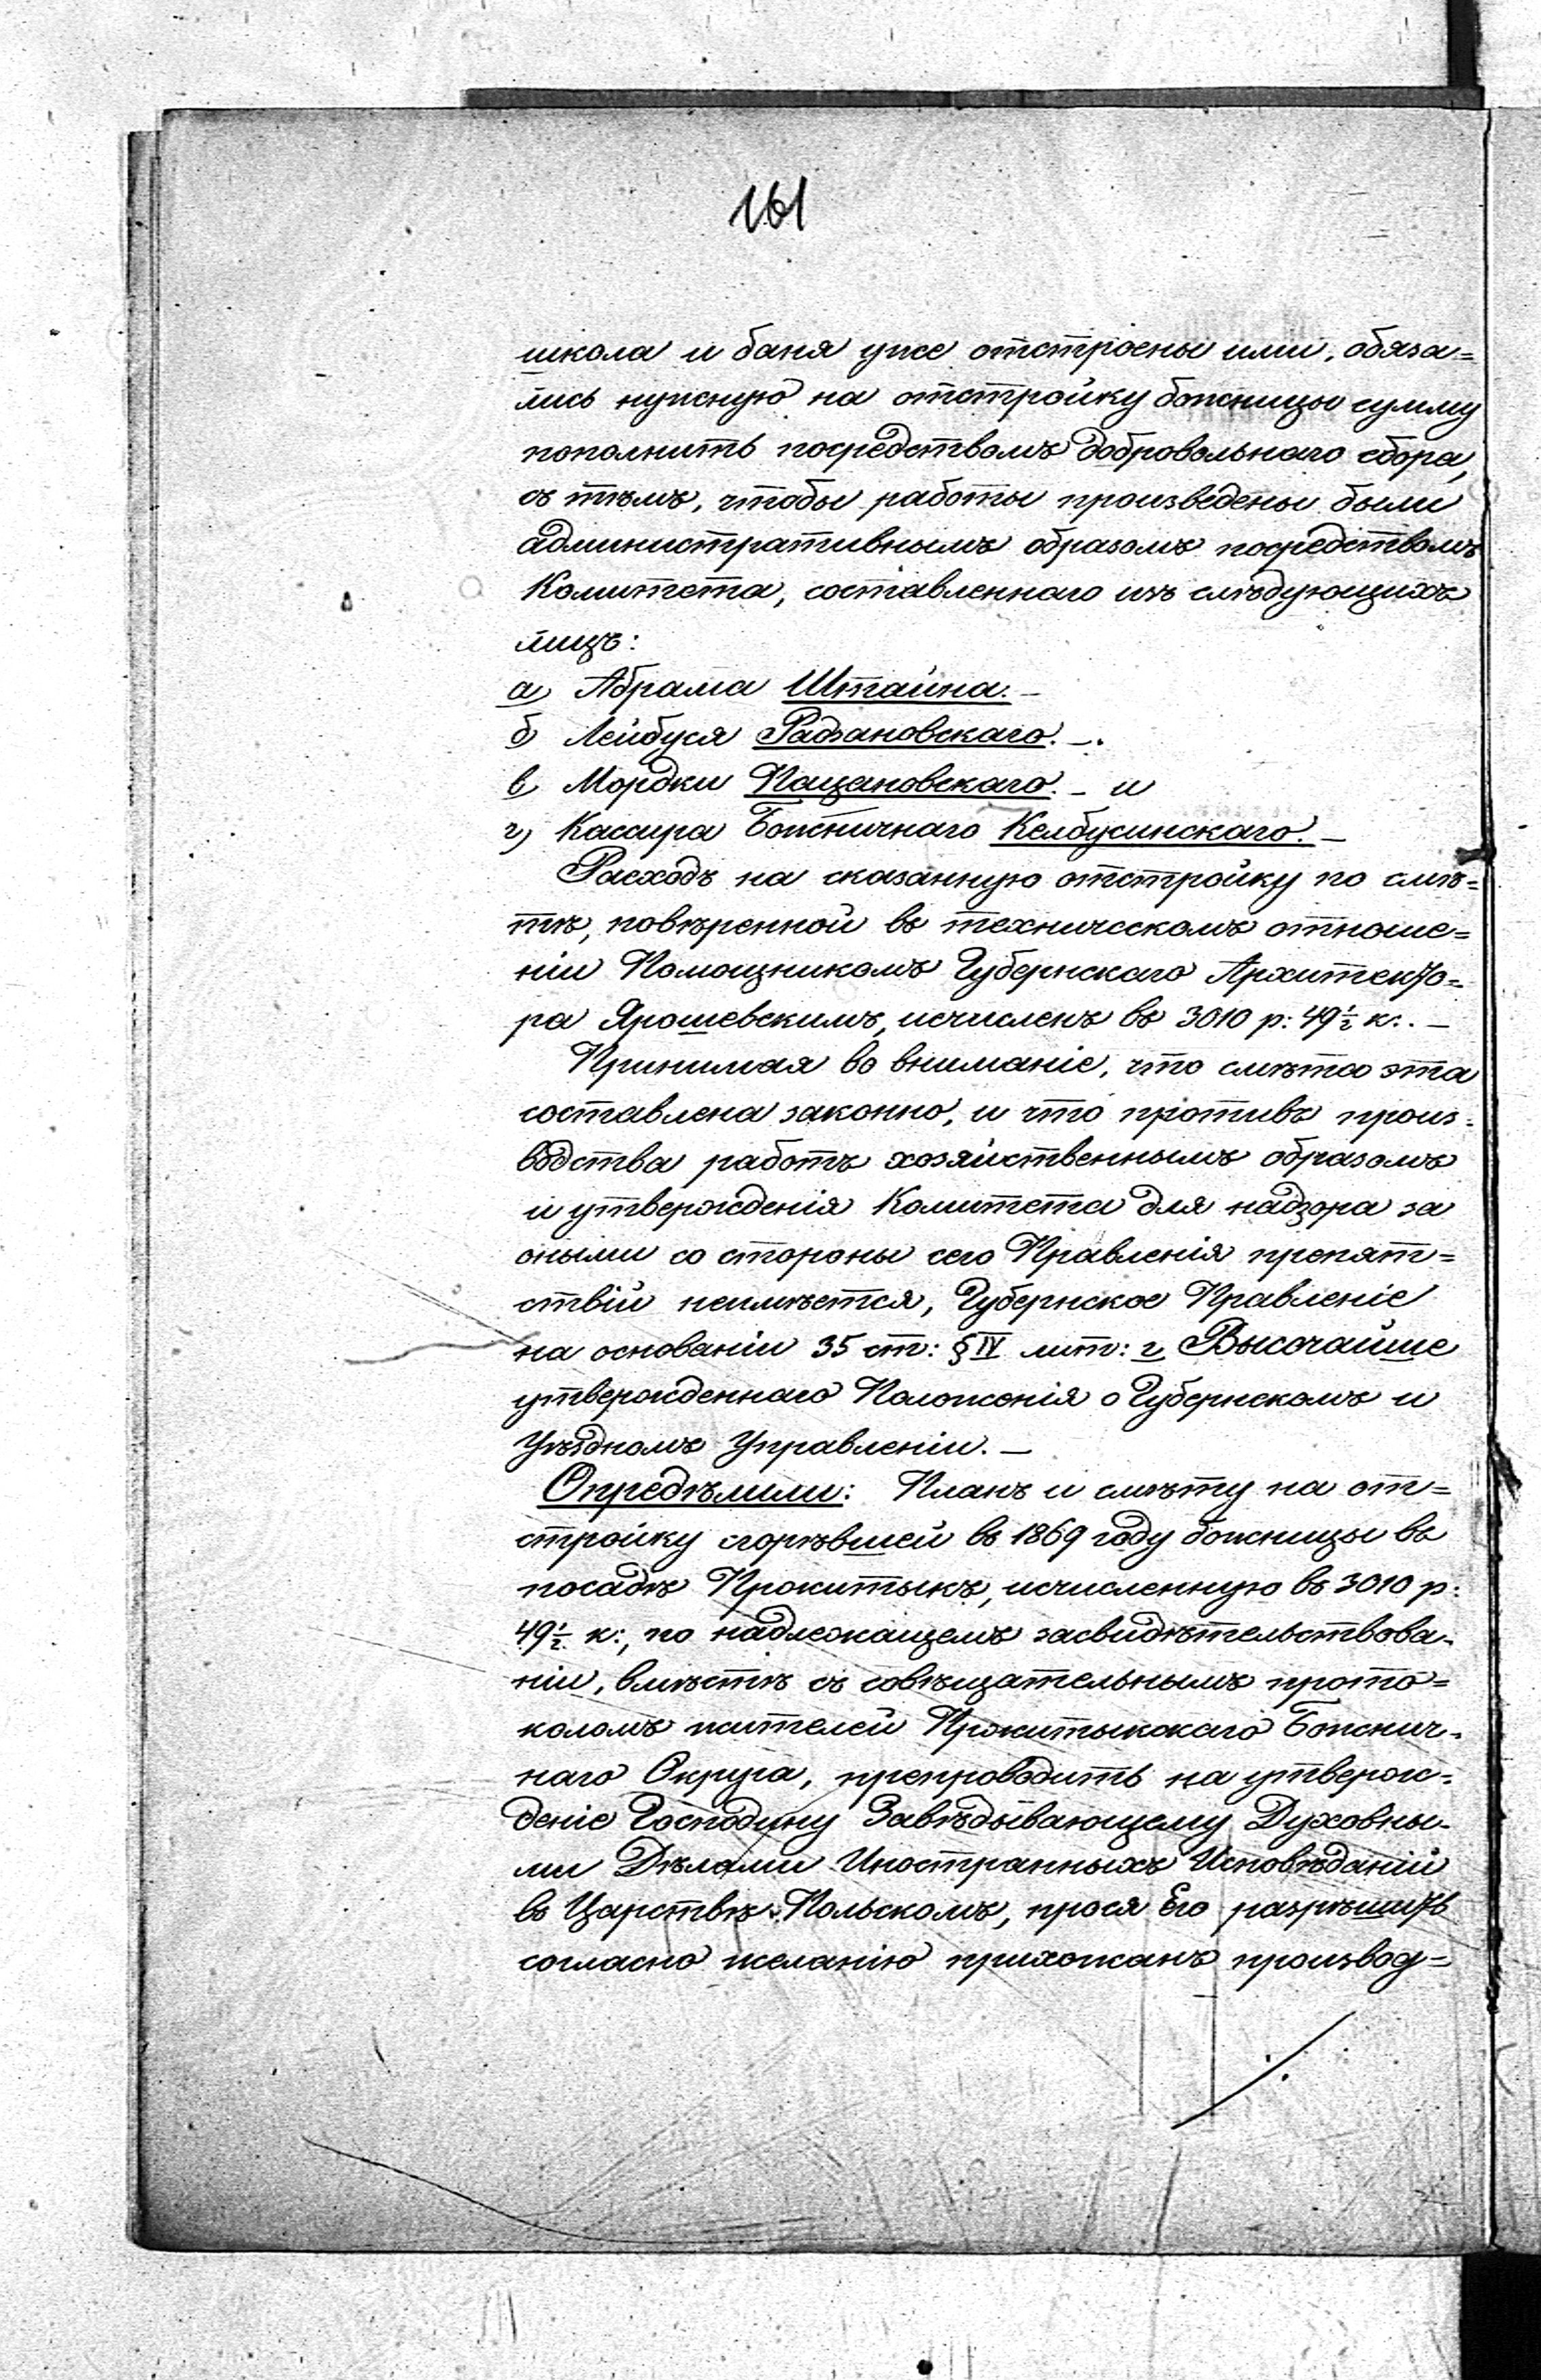 161
школа и баня уже отстроены ими, обяза=
лись нужную на отстройку божницы сумму
пополнить посредствомъ добровольнаго сбора,
съ тѣмъ, чтобы работы произведены были
административнымъ образомъ посредствомъ
Комитета, составленнаго изъ слѣдующихъ
лицъ:
а) Абрама Штайна. —
б) Лейбуся Радзановскаго. —.
в) Мордки Пацановскаго. — и
г) Кассира Божничнаго Келбусинскаго. —
Расходъ на сказанную отстройку по смѣ=
тѣ, повѣренной въ техническомъ отноше=
ніи Помощникомъ Губернскаго Архитекто=
ра Ярошевскимъ, исчисленъ въ 3010 р: 49½ к:. —
Принимая во вниманіе, что смѣта эта
составлена законно, и что противъ произ=
водства работъ хозяйственнымъ образомъ
и утвержденія Комитета для надзора за
оными со стороны сего Правленія препят=
ствій неимѣется, Губернское Правленіе
на основаніи 35 ст: § IV лит: г Высочайше
утвержденнаго Положенія о Губернскомъ и
Уѣздномъ Управленіи. —
Опредѣлили: Планъ и смѣту на от=
стройку сгорѣвшей въ 1869 году божницы въ
посадѣ Пржитыкъ, исчисленную въ 3010 р:
49½ к:, по надлежащемъ засвидѣтельствова=
ніи, вмѣстѣ съ совѣщательнымъ прото=
коломъ жителей Пржитыкскаго Божнич=
наго Округа, препроводить на утверж=
деніе Господину Завѣдывающему Духовны=
ми Дѣлами Иностранныхъ Исповѣданій
въ Царствѣ Польскомъ, прося Его разрѣшить
согласно желанію прихожанъ производ=